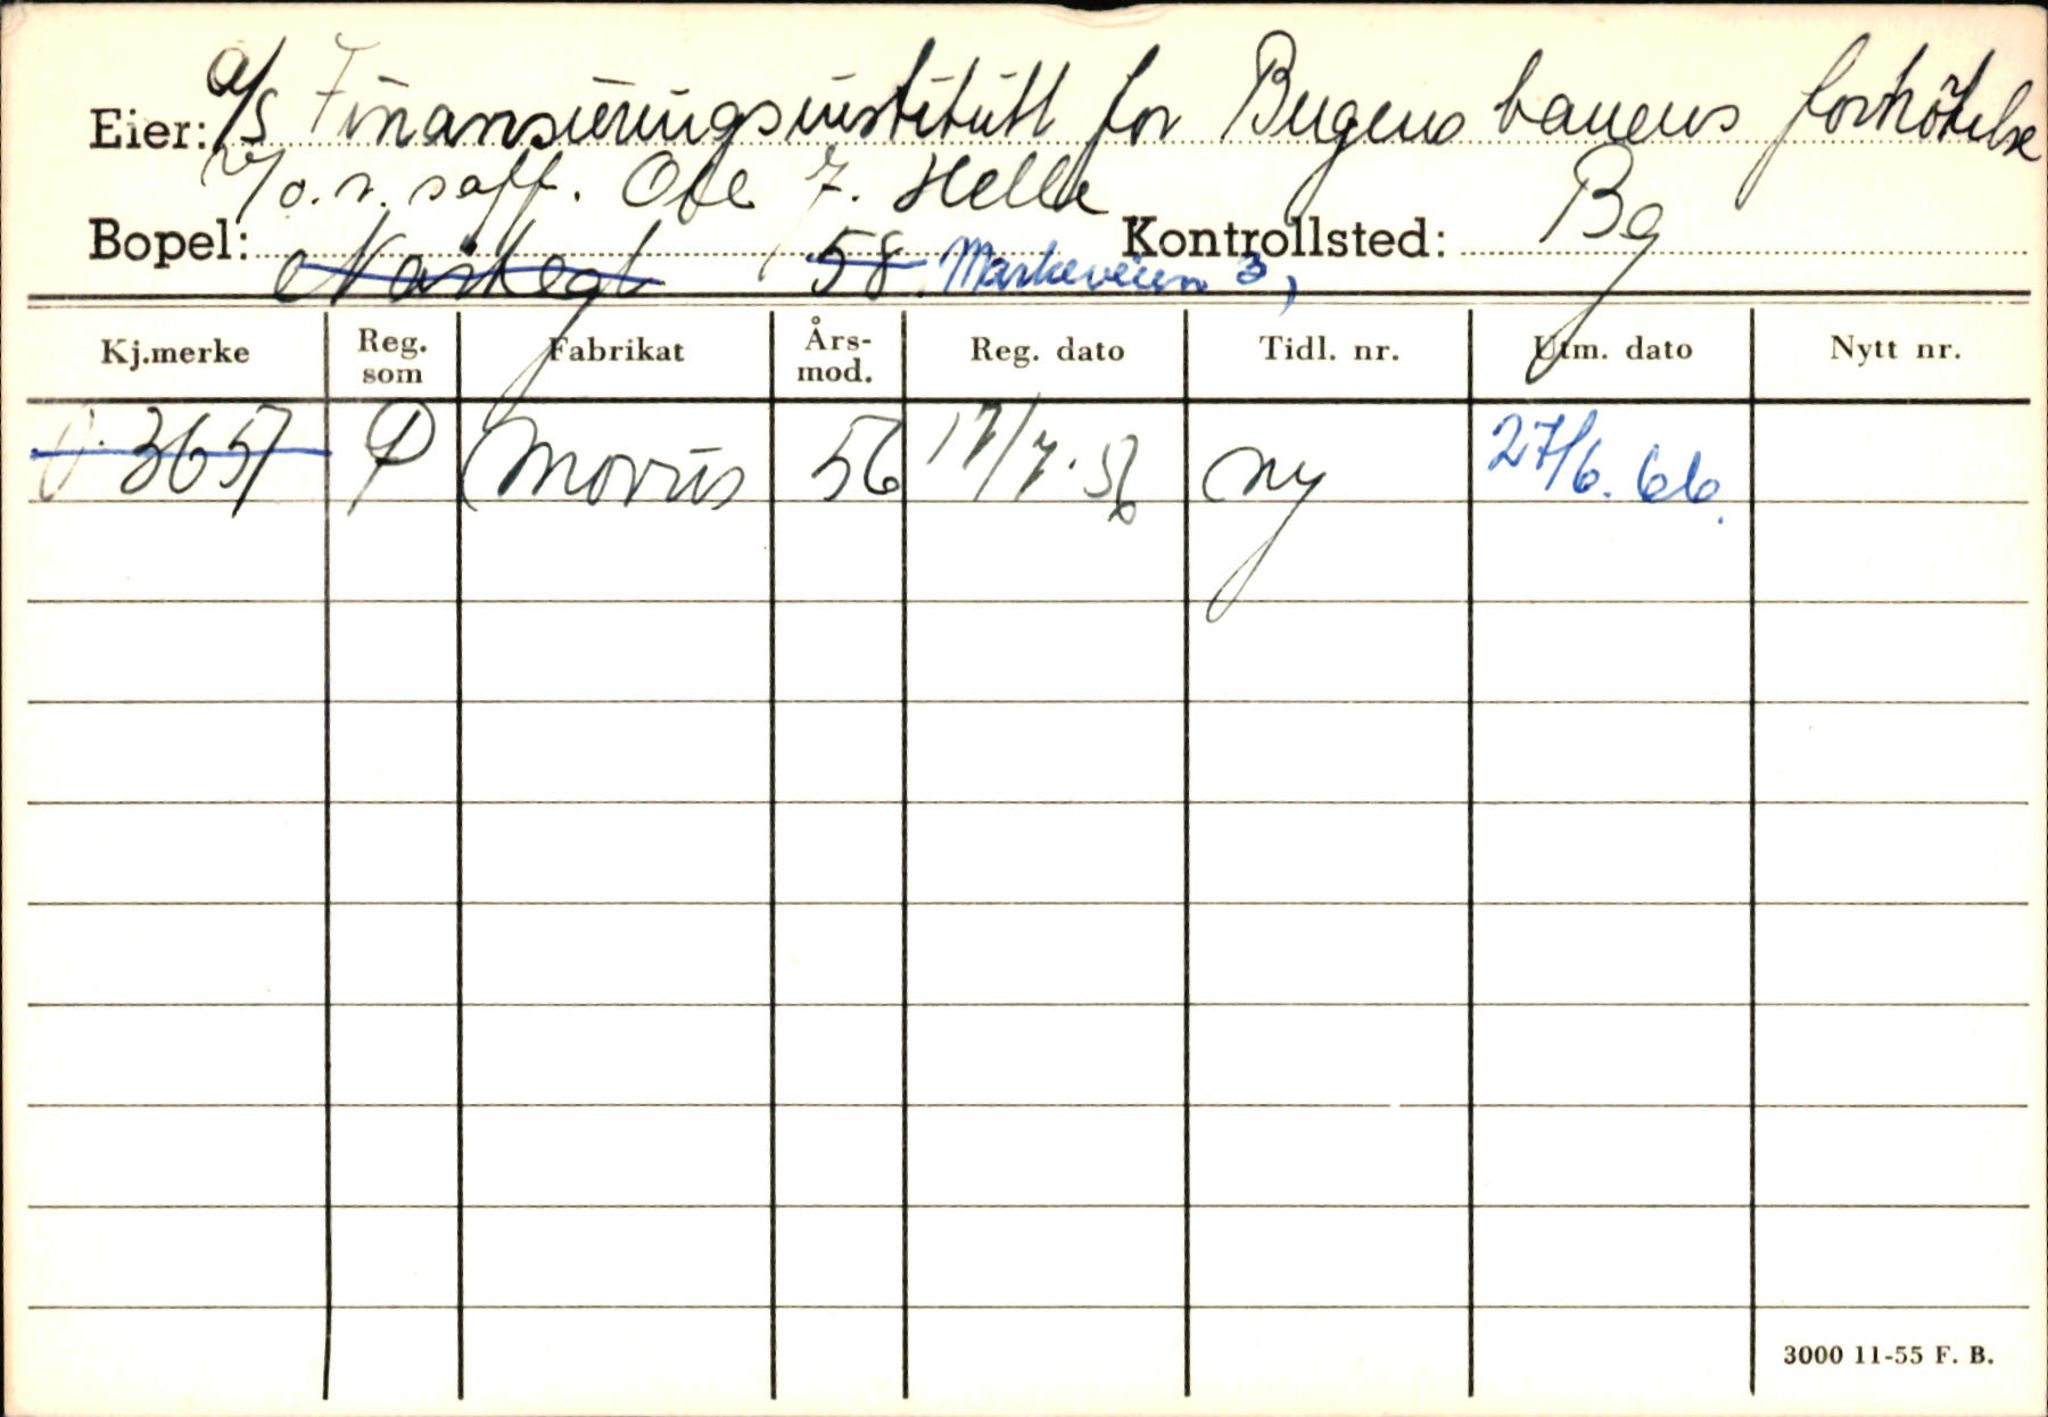 Eier: A/S Finansieringsinstitutt for Bergensbanens forkortelse
v/o.r. saff. Ole F. Helle
Bopel: Nøstegt 58. Markeveien 3, Kontrollsted: Bg
Kj.merke Reg. som Fabrikat Års-mod. Reg. dato Tidl. nr. Utm. dato Nytt nr.
O-3657 P Morris 56 17/7.56 ny 27/6.66.
3000 11-55 F. B.